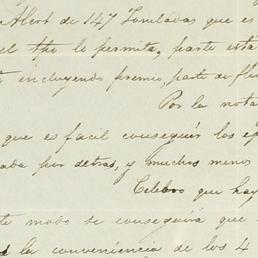 Abert de 147 Toneladas que es
el tpo le permita, parte esta
incluyendo premio, parte de fle
Por la nota
que es facil conseguir los
ada por detras, y muchos menos
Celebro que hay
te modo se conseguirá que
la conveniencia de los 4